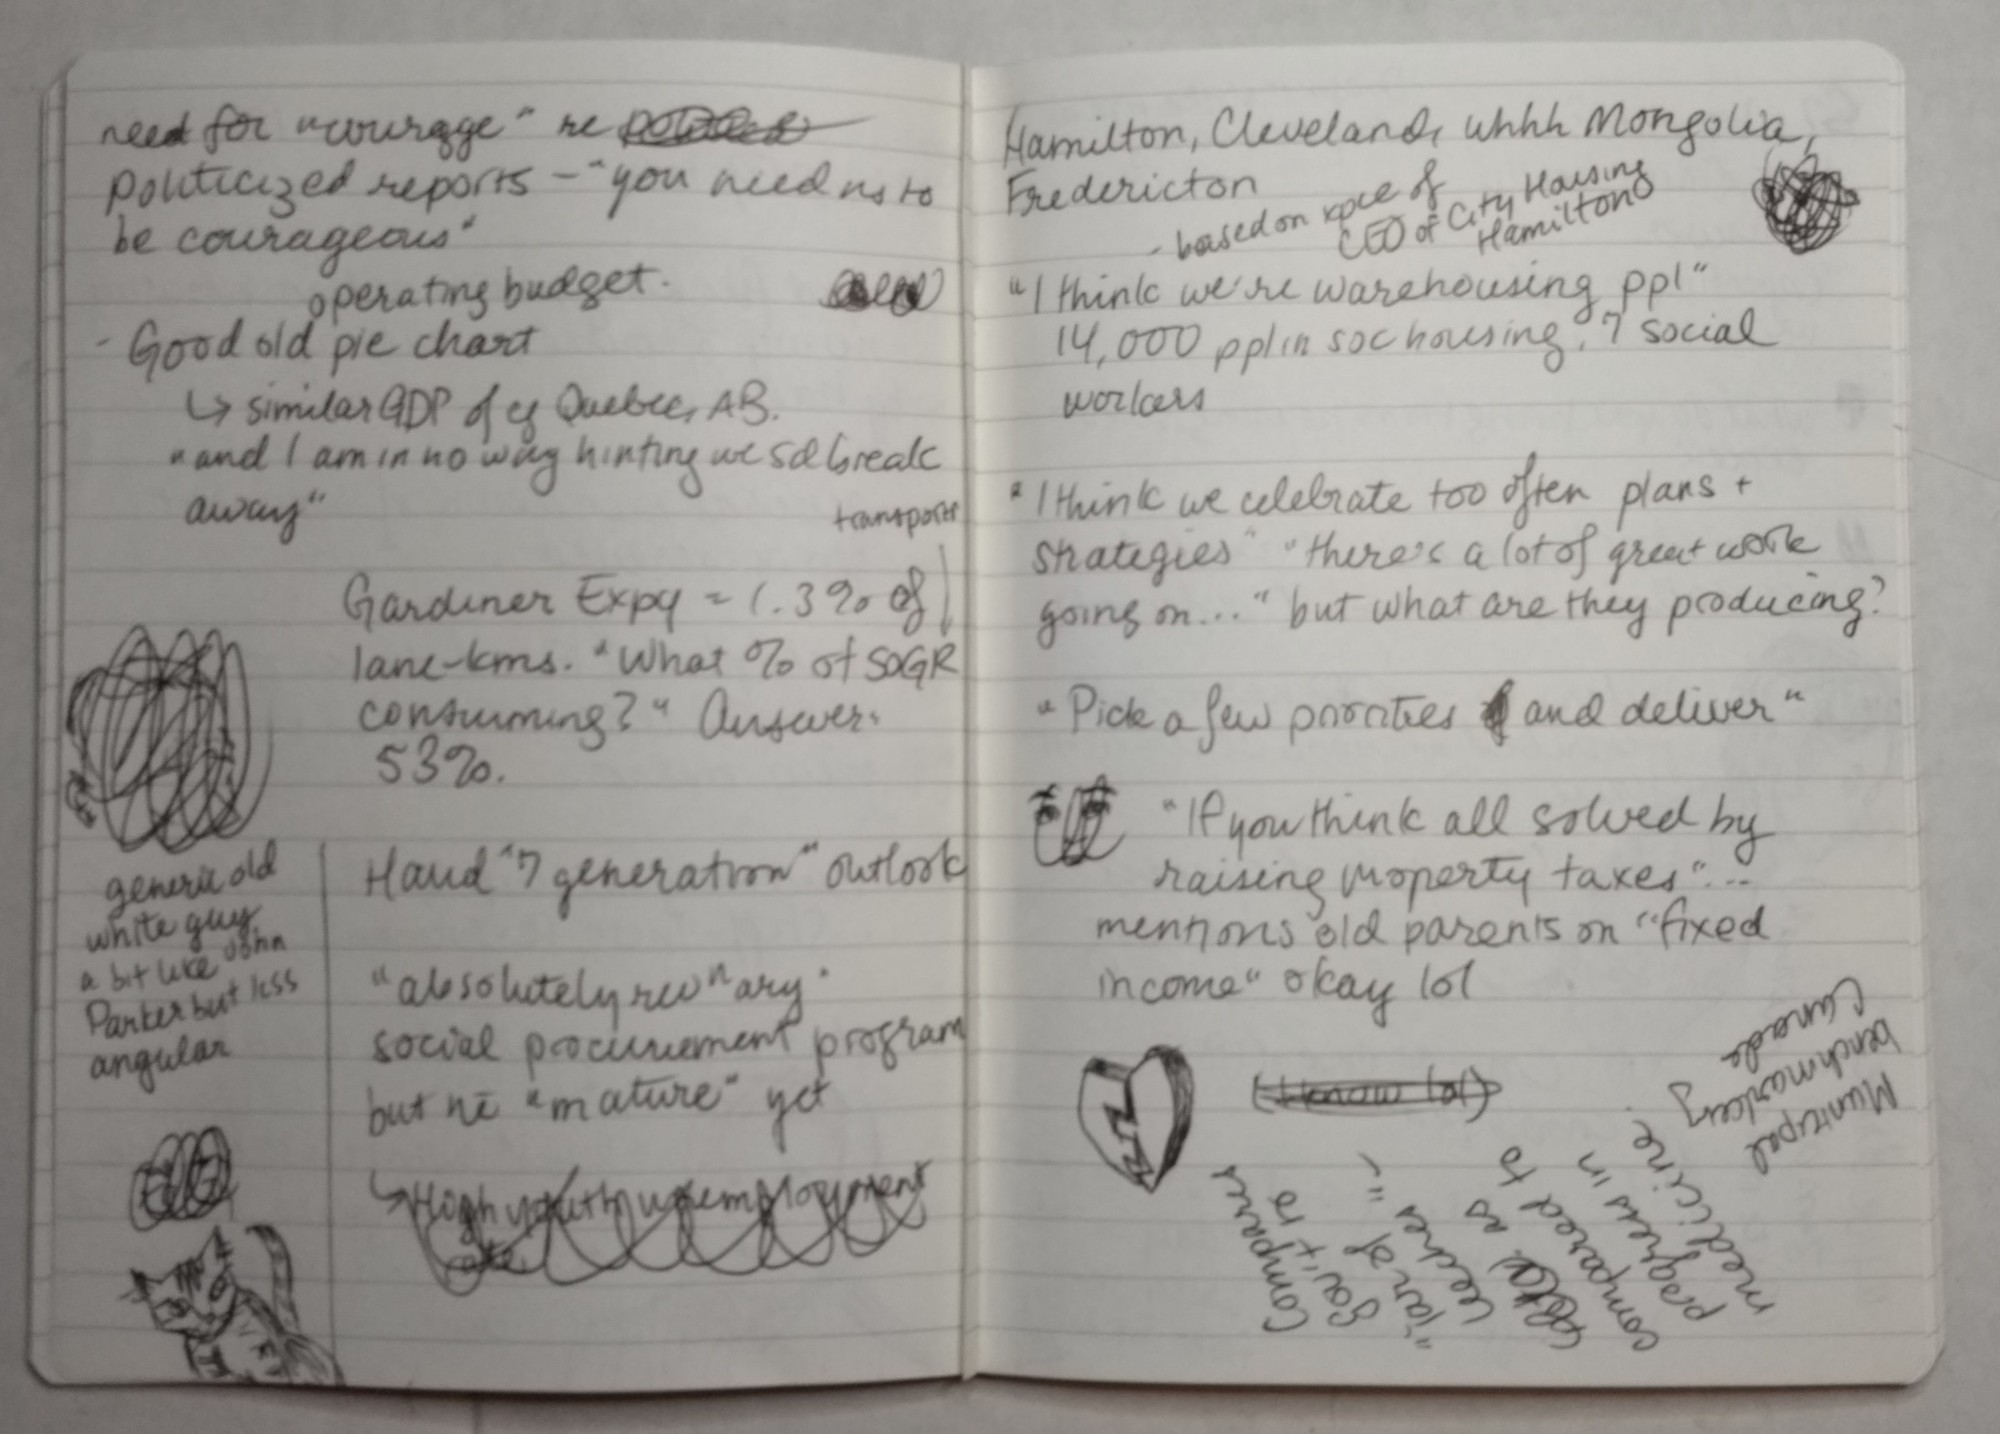 need for "courage" re
politicized reports – "you need us to
be courageous"
operating budget.
- Good old pie chart
↳ similar GDP of eg Quebec, AB.
"and I am in no way hinting we sd break
away"
transport
Gardiner Expy = 1.3% of
lane-kms. "What % of SOGR
consuming?" Answer:
53%.
generic old
white guy,
a bit like John
Parker but less
angular
Haud "7 generation" outlook
"absolutely rev'n'ary"
social procurement program
but nt "mature" yet
↳ High youth unemployment
rate
Hamilton, Cleveland, uhhh Mongolia,
Fredericton
- based on xpce of
CEO of City Housing
Hamilton
"I think we're warehousing ppl"
14,000 ppl in soc housing, 7 social
workers
"I think we celebrate too often plans +
strategies" "there's a lot of great work
going on..." but what are they producing?
"Pick a few priorities and deliver"
"If you think all solved by
raising property taxes"...
mentions old parents on "fixed
income" okay lol
(I know lol)
Municipal
benchmarking
Canada
Compares
gov't to
"jar of
leeches",
as
compared to
progress in
medicine.